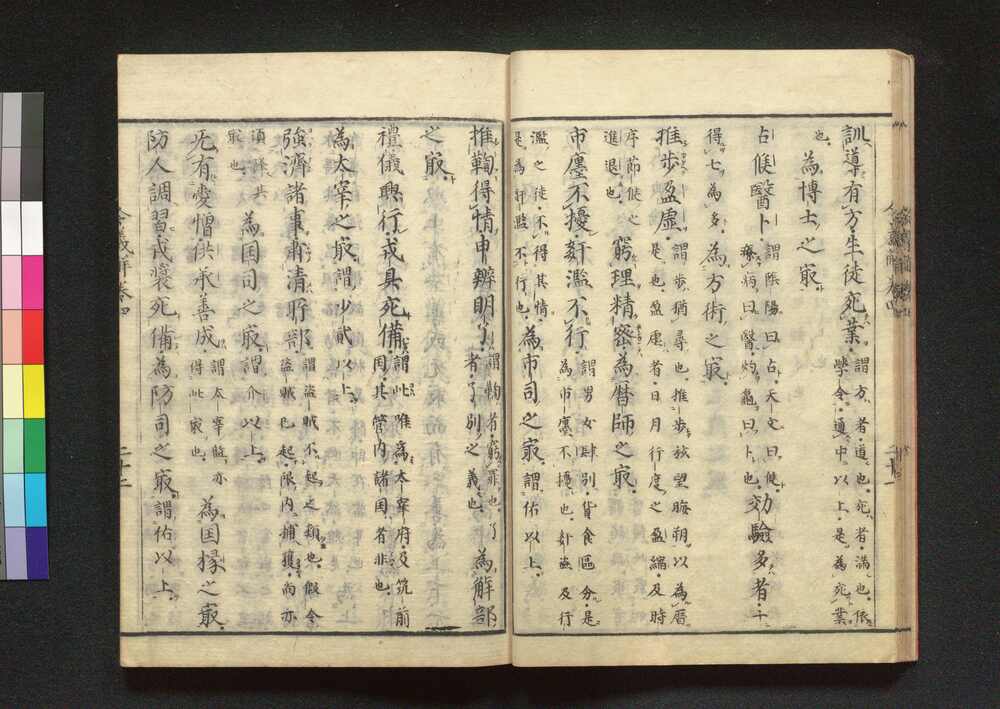 訓導有方生徒充業
謂方者道也充者満也依
學令通中以上是為充業
也
為博士之㝡
占候醫卜
謂陰陽曰占天文曰候
療病曰醫灼龜曰卜也
効驗多者
十
得七為多
為方術之㝡
推歩盈虚
謂歩猶尋也推歩弦望晦朔以為暦
是也盈虚者日月行度之盈縮及時
序節候之
進退也
窮理精密為暦師之㝡
市廛不擾姧濫不行
謂男女肆別貨食區分是
為市廛不擾也姧盗及行
濫之徒不得其情
是為姧濫不行也
為市司之㝡謂佑以上
推鞫得情申辨明了
謂鞫者窮罪也了
者了別之義也
為解部
之㝡
禮儀興行戎具充備
謂此唯為太宰府及筑前
国其管内諸国者非也
為太宰之㝡謂少貳以上
強濟諸事肅清所部
謂盗賊不起之類也假令
盗賊已起限内捕獲尚亦
㝡也
為国司之㝡謂介以上
无有愛憎供承善成
謂太宰監亦
得此㝡也
為国掾之㝡
防人調習戎装充備為防司之㝡謂佑以上
令義解巻四
二十二